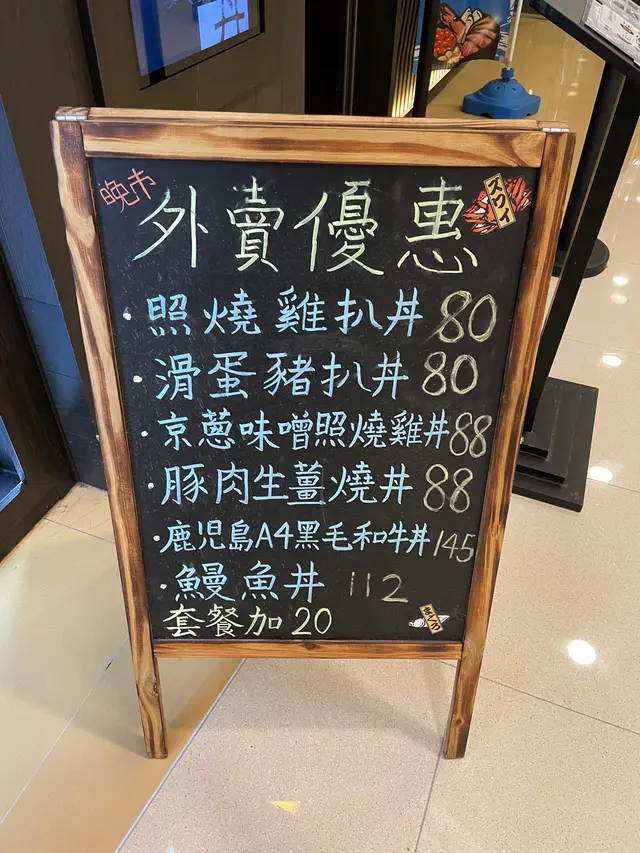 晚市
外賣優惠
スワイ
· 照燒雞扒丼 80
· 滑蛋豬扒丼 80
· 京蔥味噌照燒雞丼 88
· 豚肉生薑燒丼 88
· 鹿児島A4黑毛和牛丼 145
· 鰻魚丼 112
套餐加 20
まぐろ